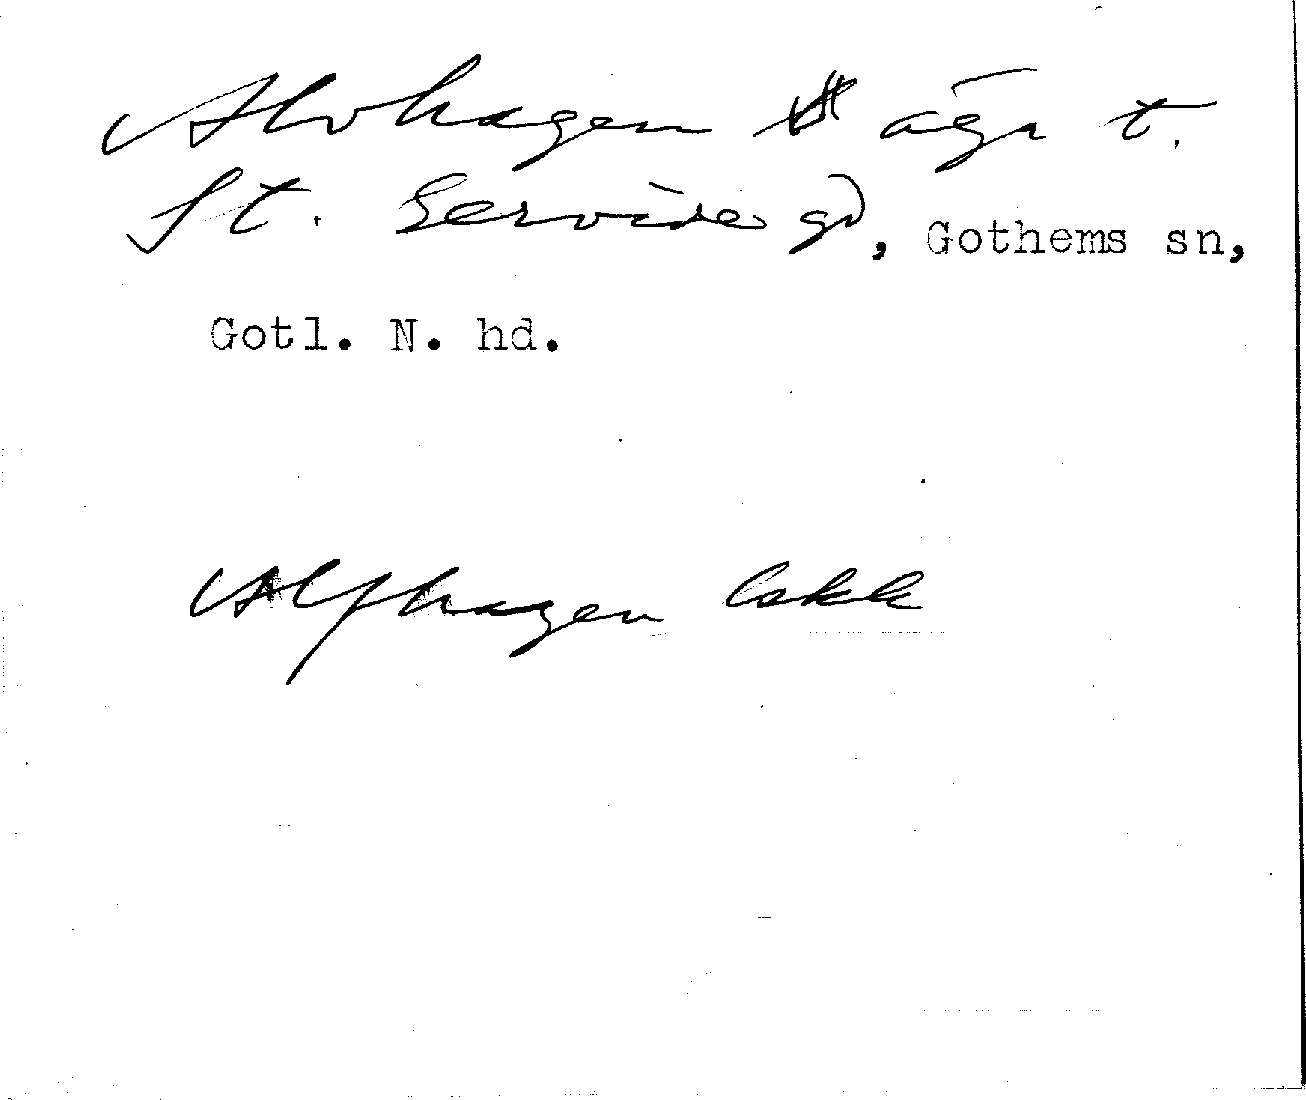 Alvhagen t.
St. Gervide gd, Gothems sn,
Gotl. N. hd.
Alfhagen